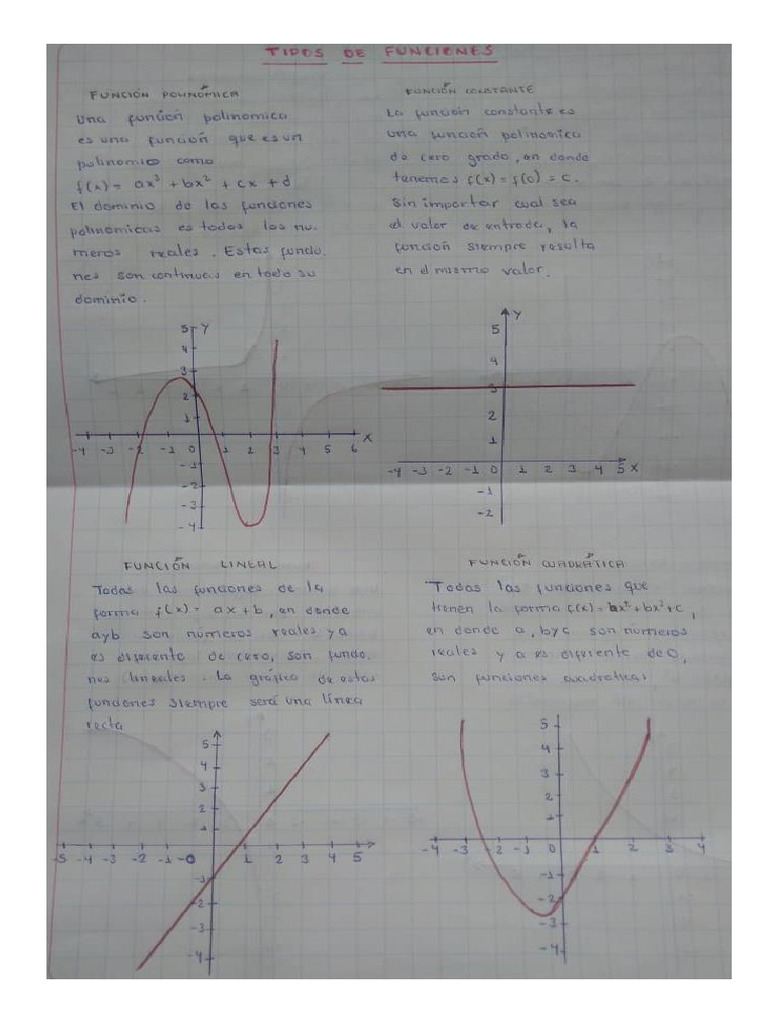 TIPOS DE FUNCIONES
FUNCIÓN POLINÓMICA
Una función polinomica
es una función que es un
polinomio como
f(x) = ax³ + bx² + cx + d
El dominio de las funciones
polinomicas es todos los nu-
meros reales. Estas funcio.
nes son continuas en todo su
dominio.
5 Y
4
3
2
1
-4 -3 -2 -1 0 1 2 3 4 5 6 X
-1
-2
-3
-4
FUNCIÓN CONSTANTE
La función constante es
una función polinomica
de cero grado, en donde
tenemos f(x) = f(0) = c.
Sin importar cual sea
el valor de entrada, la
función siempre resulta
en el mismo valor.
Y
5
4
3
2
1
-4 -3 -2 -1 0 1 2 3 4 5 X
-1
-2
FUNCIÓN LINEAL
Todas las funciones de la
forma f(x) = ax + b, en donde
a y b son números reales y a
es diferente de cero, son funcio.
nes lineales. La gráfica de estas
funciones siempre será una línea
recta
5
4
3
2
1
-5 -4 -3 -2 -1 -0 1 2 3 4 5
-1
-2
-3
-4
FUNCIÓN CUADRÁTICA
Todas las funciones que
tienen la forma f(x) = + bx² + c,
en donde a, b y c son números
reales y a es diferente de 0,
son funciones cuadraticas
5
4
3
2
1
-4 -3 -2 -1 0 1 2 3 4
-1
-2
-3
-4